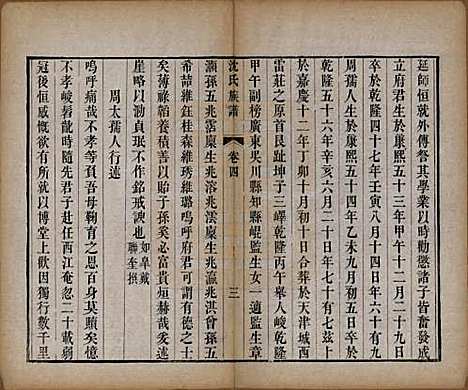 延師恒就外傅督其學業以時勸懲諸子皆奮發成
立府君生於康熙五十三年甲午十二月二十九日
卒於乾隆四十七年壬寅八月十四日年六十有九
周孺人生於康熙五十四年乙未九月初六日卒於
乾隆五十六年辛亥六月二十日年七十有七茲上
於嘉慶十二年丁卯十月初十日合葬於天津城西
雷莊之原首艮趾坤子三嶧乾隆丙午舉人峻乾隆
甲午副榜廣東吳川縣知縣崐監生女一適監生章
沈氏族譜
卷四
三
灝孫五兆澐廩生兆溶兆澐廩生兆瀛兆洪曾孫五
希喆維鈺桂森維琇維璐嗚呼府君可謂有德之士
矣薄祿韜德積善以貽子孫矣必富貴烜赫哉爰最
崖略以泐貞珉不作銘戒諛也
如皋戴
聯奎撰
周太孺人行述
嗚呼痛哉不孝等尚忍言吾母鞠育之身莫贖矣憶
不孝峻髫齡時隨先君子赴西江奄忽二十載弱
冠後恒感慨欲有以博堂上歡因獨行數千里